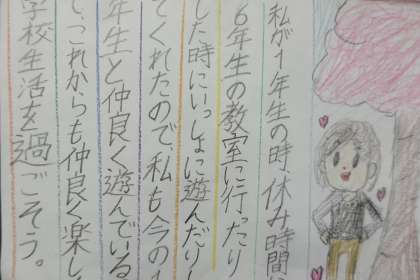 私が1年生の時、休み時間
6年生の教室に行ったり
した時にいっしょに遊んだりし
てくれたので、私も今の1
年生と仲良く遊んでいる
て、これからも仲良く楽し
学校生活を過ごそう。